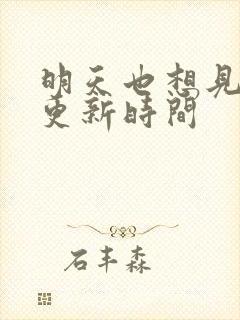 明天也想見
更新時間
石丰森